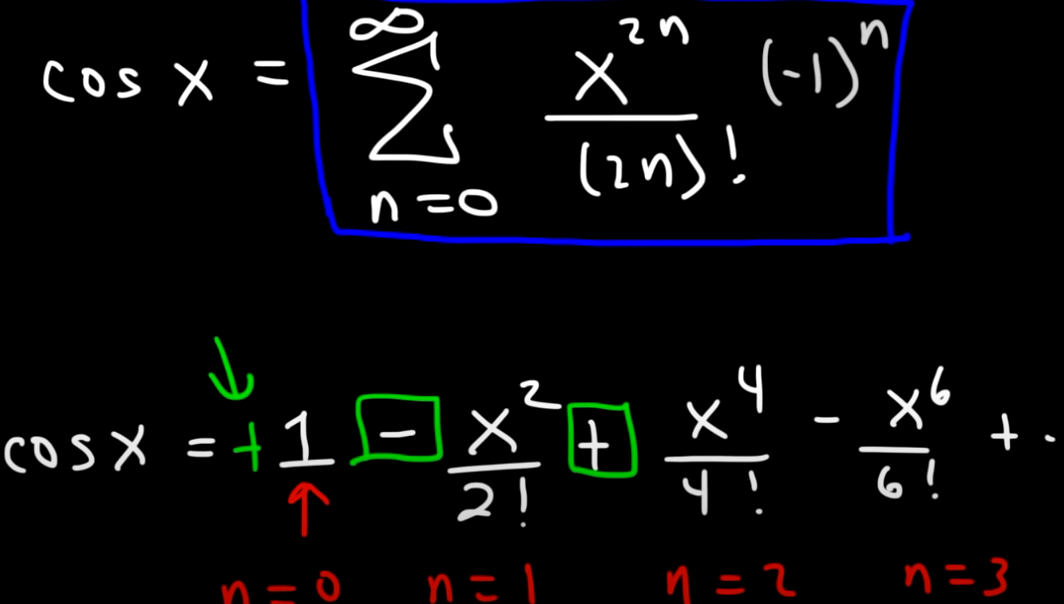 cos x = ∞ ∑ n=0 x^2n / (2n)! (-1)^n
cos x = + 1 − x^2 / 2! + x^4 / 4! − x^6 / 6! + ·
n = 0 n = 1 n = 2 n = 3